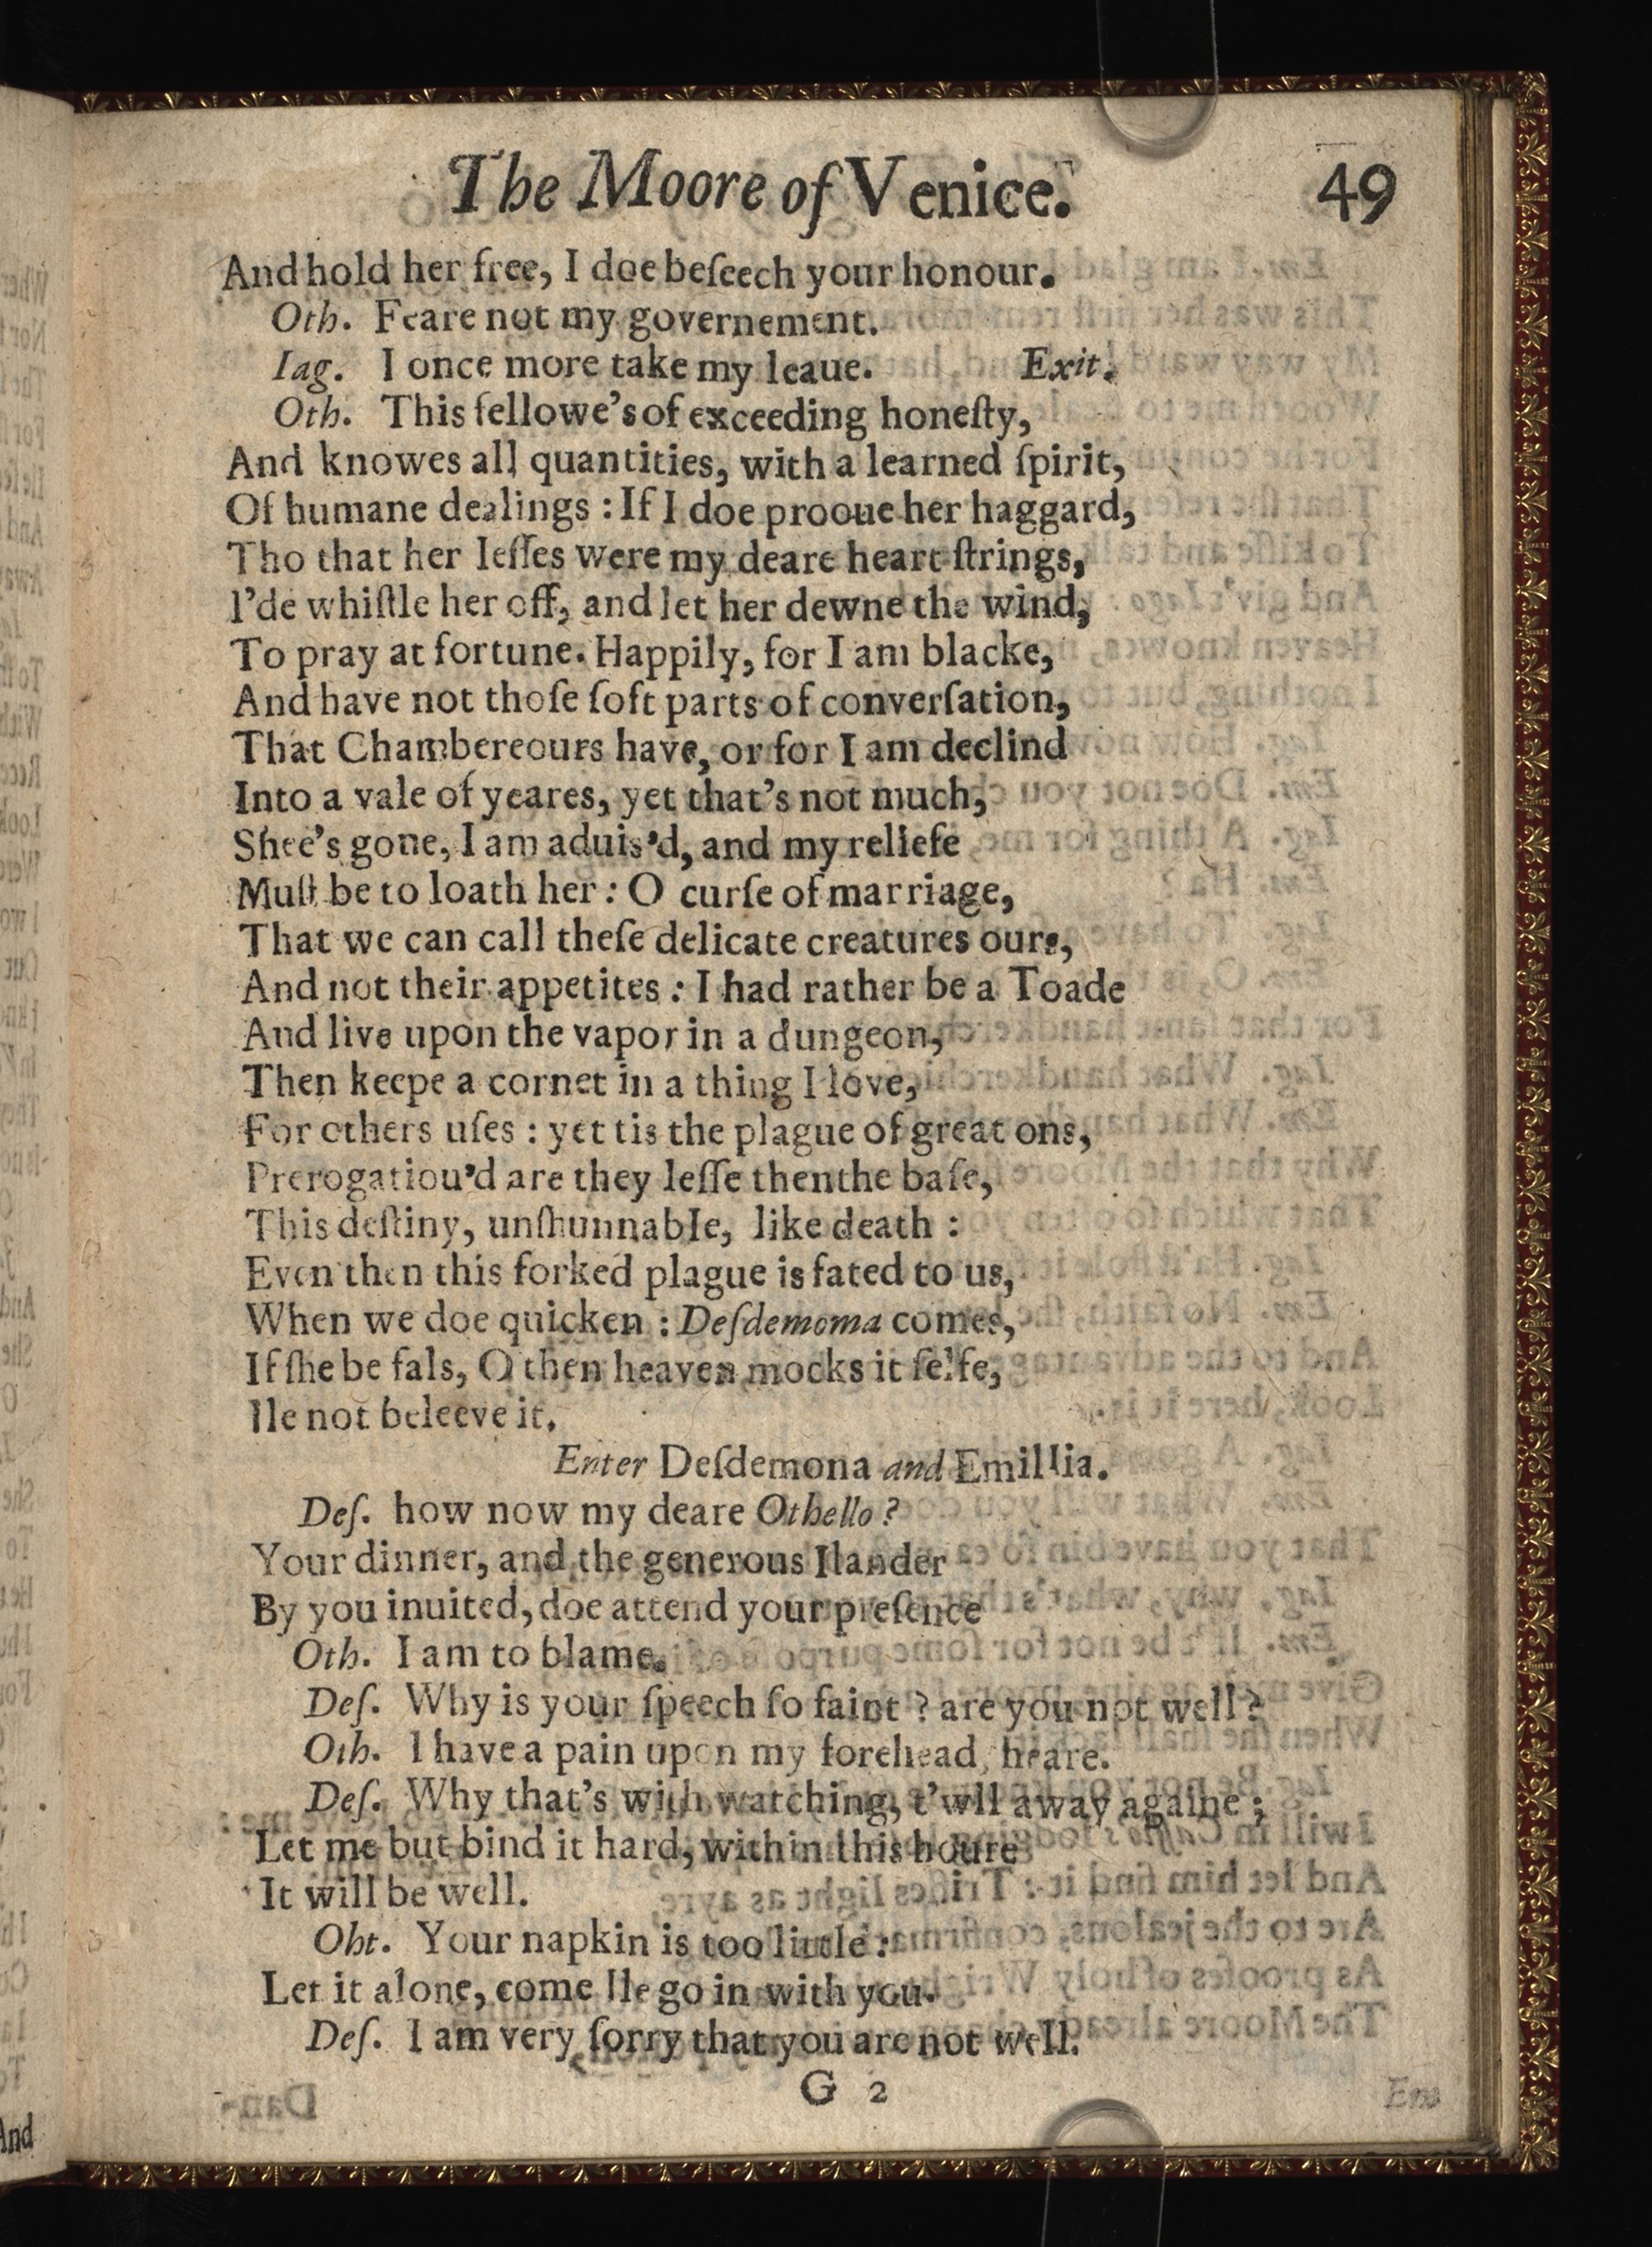 The Moore of Venice. 49
And hold her free, I doe beſeech your honour.
Oth. Feare not my governement.
Iag. I once more take my leaue. Exit.
Oth. This fellowe's of exceeding honeſty,
And knowes all quantities, with a learned ſpirit,
Of humane dealings : If I doe prooue her haggard,
Tho that her Ieſſes were my deare heart ſtrings,
I'de whiſtle her off, and let her dewne the wind,
To pray at fortune. Happily, for I am blacke,
And have not thoſe ſoft parts of converſation,
That Chambereours have, or for I am declind
Into a vale of yeares, yet that's not much,
Shee's gone, I am aduis'd, and my reliefe
Muſt be to loath her : O curſe of marriage,
That we can call theſe delicate creatures ours,
And not their appetites : I had rather be a Toade
And live upon the vapor in a dungeon,
Then keepe a cornet in a thing I love,
For others uſes : yet tis the plague of great ons,
Prerogatiou'd are they leſſe thenthe baſe,
This deſtiny, unſhunnable, like death :
Even then this forked plague is fated to us,
When we doe quicken : Deſdemoma comes,
If ſhe be fals, O then heaven mocks it ſelfe,
Ile not beleeve it.
Enter Deſdemona and Emillia.
Deſ. how now my deare Othello ?
Your dinner, and the generous Ilander
By you inuited, doe attend your preſence
Oth. I am to blame.
Deſ. Why is your ſpeech ſo faint ? are you not well ?
Oth. I have a pain upon my forehead, heare.
Deſ. Why that's with watching, t'wll away againe ;
Let me but bind it hard, within this houre
It will be well.
Oht. Your napkin is too little :
Let it alone, come Ile go in with you.
Deſ. I am very ſorry that you are not well.
G 2
And